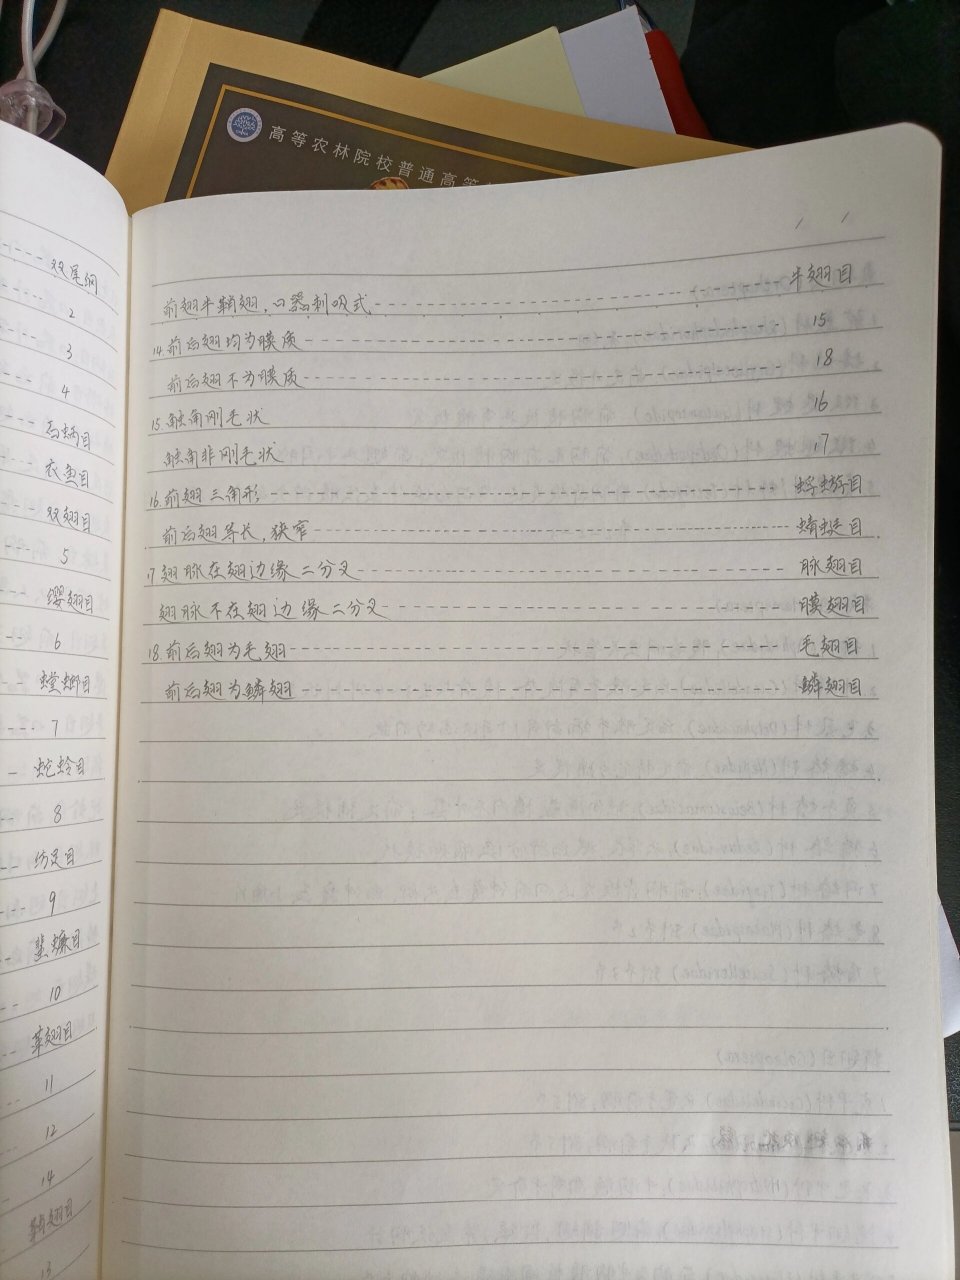 高等农林院校普通高等
双尾纲
2
3
4
石蛃目
衣鱼目
双翅目
5
缨翅目
6
螳螂目
7
蛇蛉目
8
纺足目
9
蜚蠊目
10
革翅目
11
12
14
鞘翅目
13
前翅半鞘翅,口器刺吸式 半翅目
14.前后翅均为膜质 15
前后翅不为膜质 18
15.触角刚毛状 16
触角非刚毛状 17
16.前翅三角形 蜉蝣目
前后翅等长,狭窄 蜻蜓目
17.翅脉在翅边缘二分叉 脉翅目
翅脉不在翅边缘二分叉 膜翅目
18.前后翅为毛翅 毛翅目
前后翅为鳞翅 鳞翅目